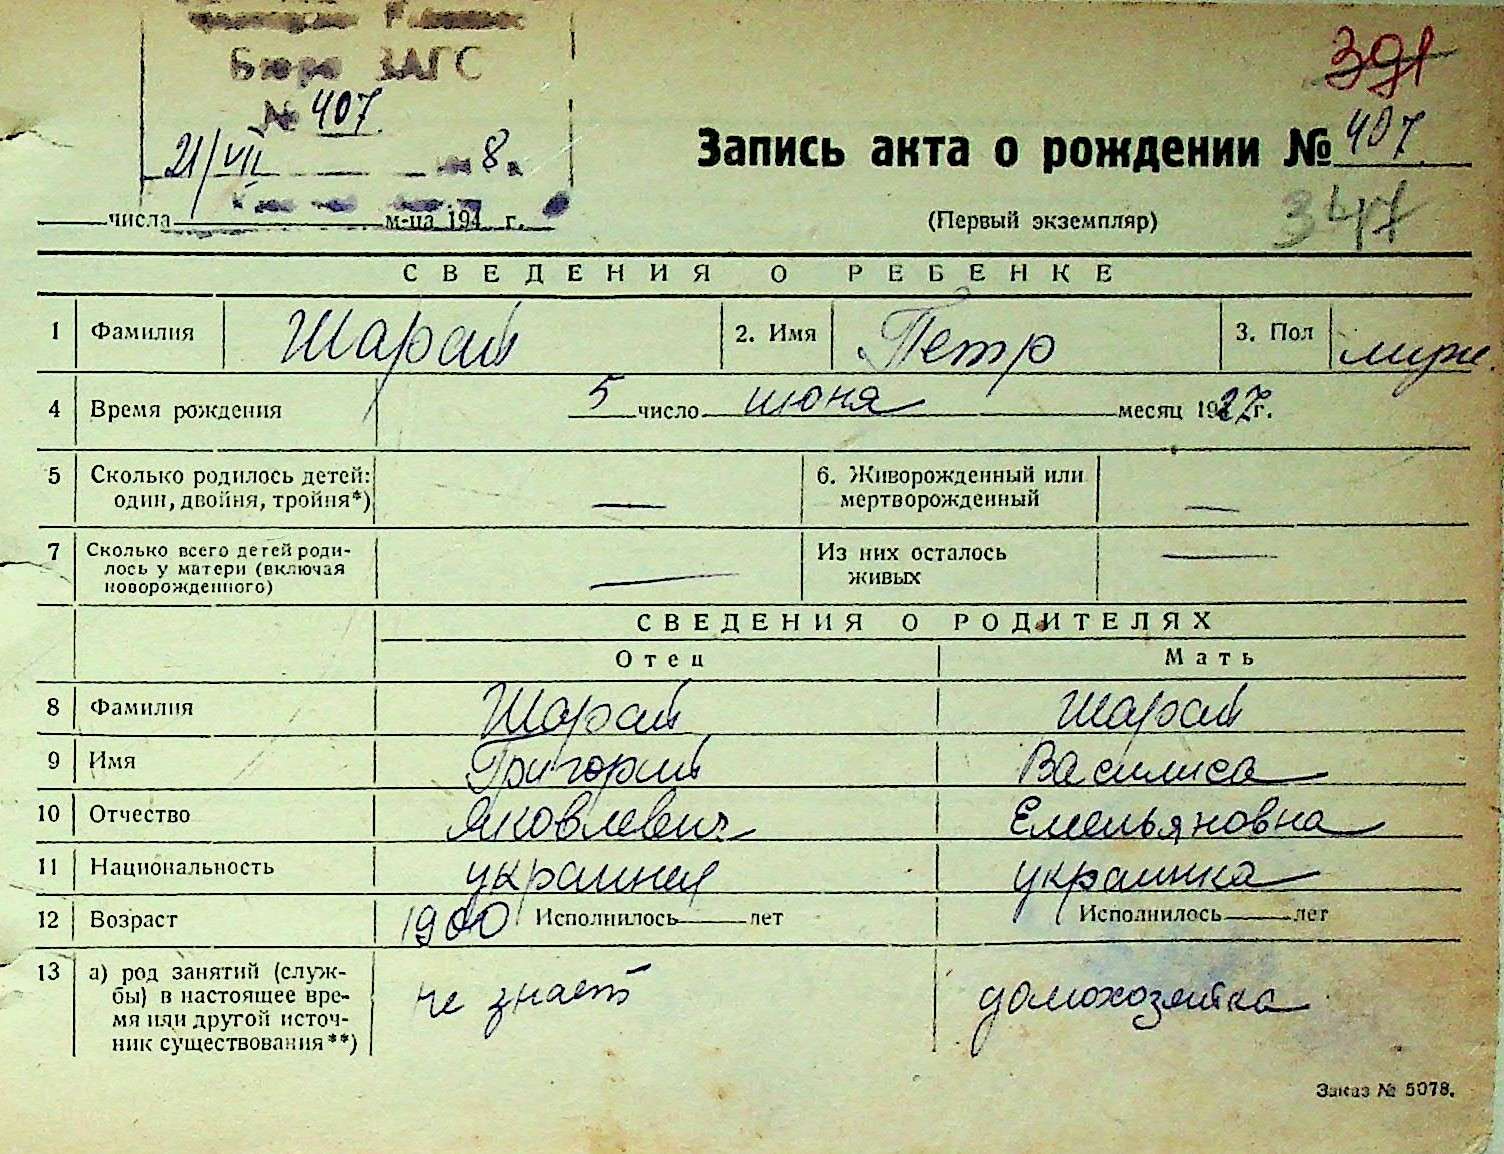 Бюро ЗАГС
№ 407
21/VII 8 г.
числа м-ца 194 г.
391
Запись акта о рождении № 407
(Первый экземпляр)
347
СВЕДЕНИЯ О РЕБЕНКЕ
1 Фамилия Шарай 2. Имя Петр 3. Пол муж.
4 Время рождения 5 число июня месяц 1927 г.
5 Сколько родилось детей: один, двойня, тройня*) — 6. Живорожденный или мертворожденный —
7 Сколько всего детей родилось у матери (включая новорожденного) — Из них осталось живых —
СВЕДЕНИЯ О РОДИТЕЛЯХ
Отец Мать
8 Фамилия Шарай Шарай
9 Имя Григорий Василиса
10 Отчество Яковлевич Емельяновна
11 Национальность украинец украинка
12 Возраст 1900 Исполнилось лет Исполнилось лет
13 а) род занятий (служ-
бы) в настоящее вре-
мя или другой источ-
ник существования**) не знает домохозяйка
Заказ № 5078.